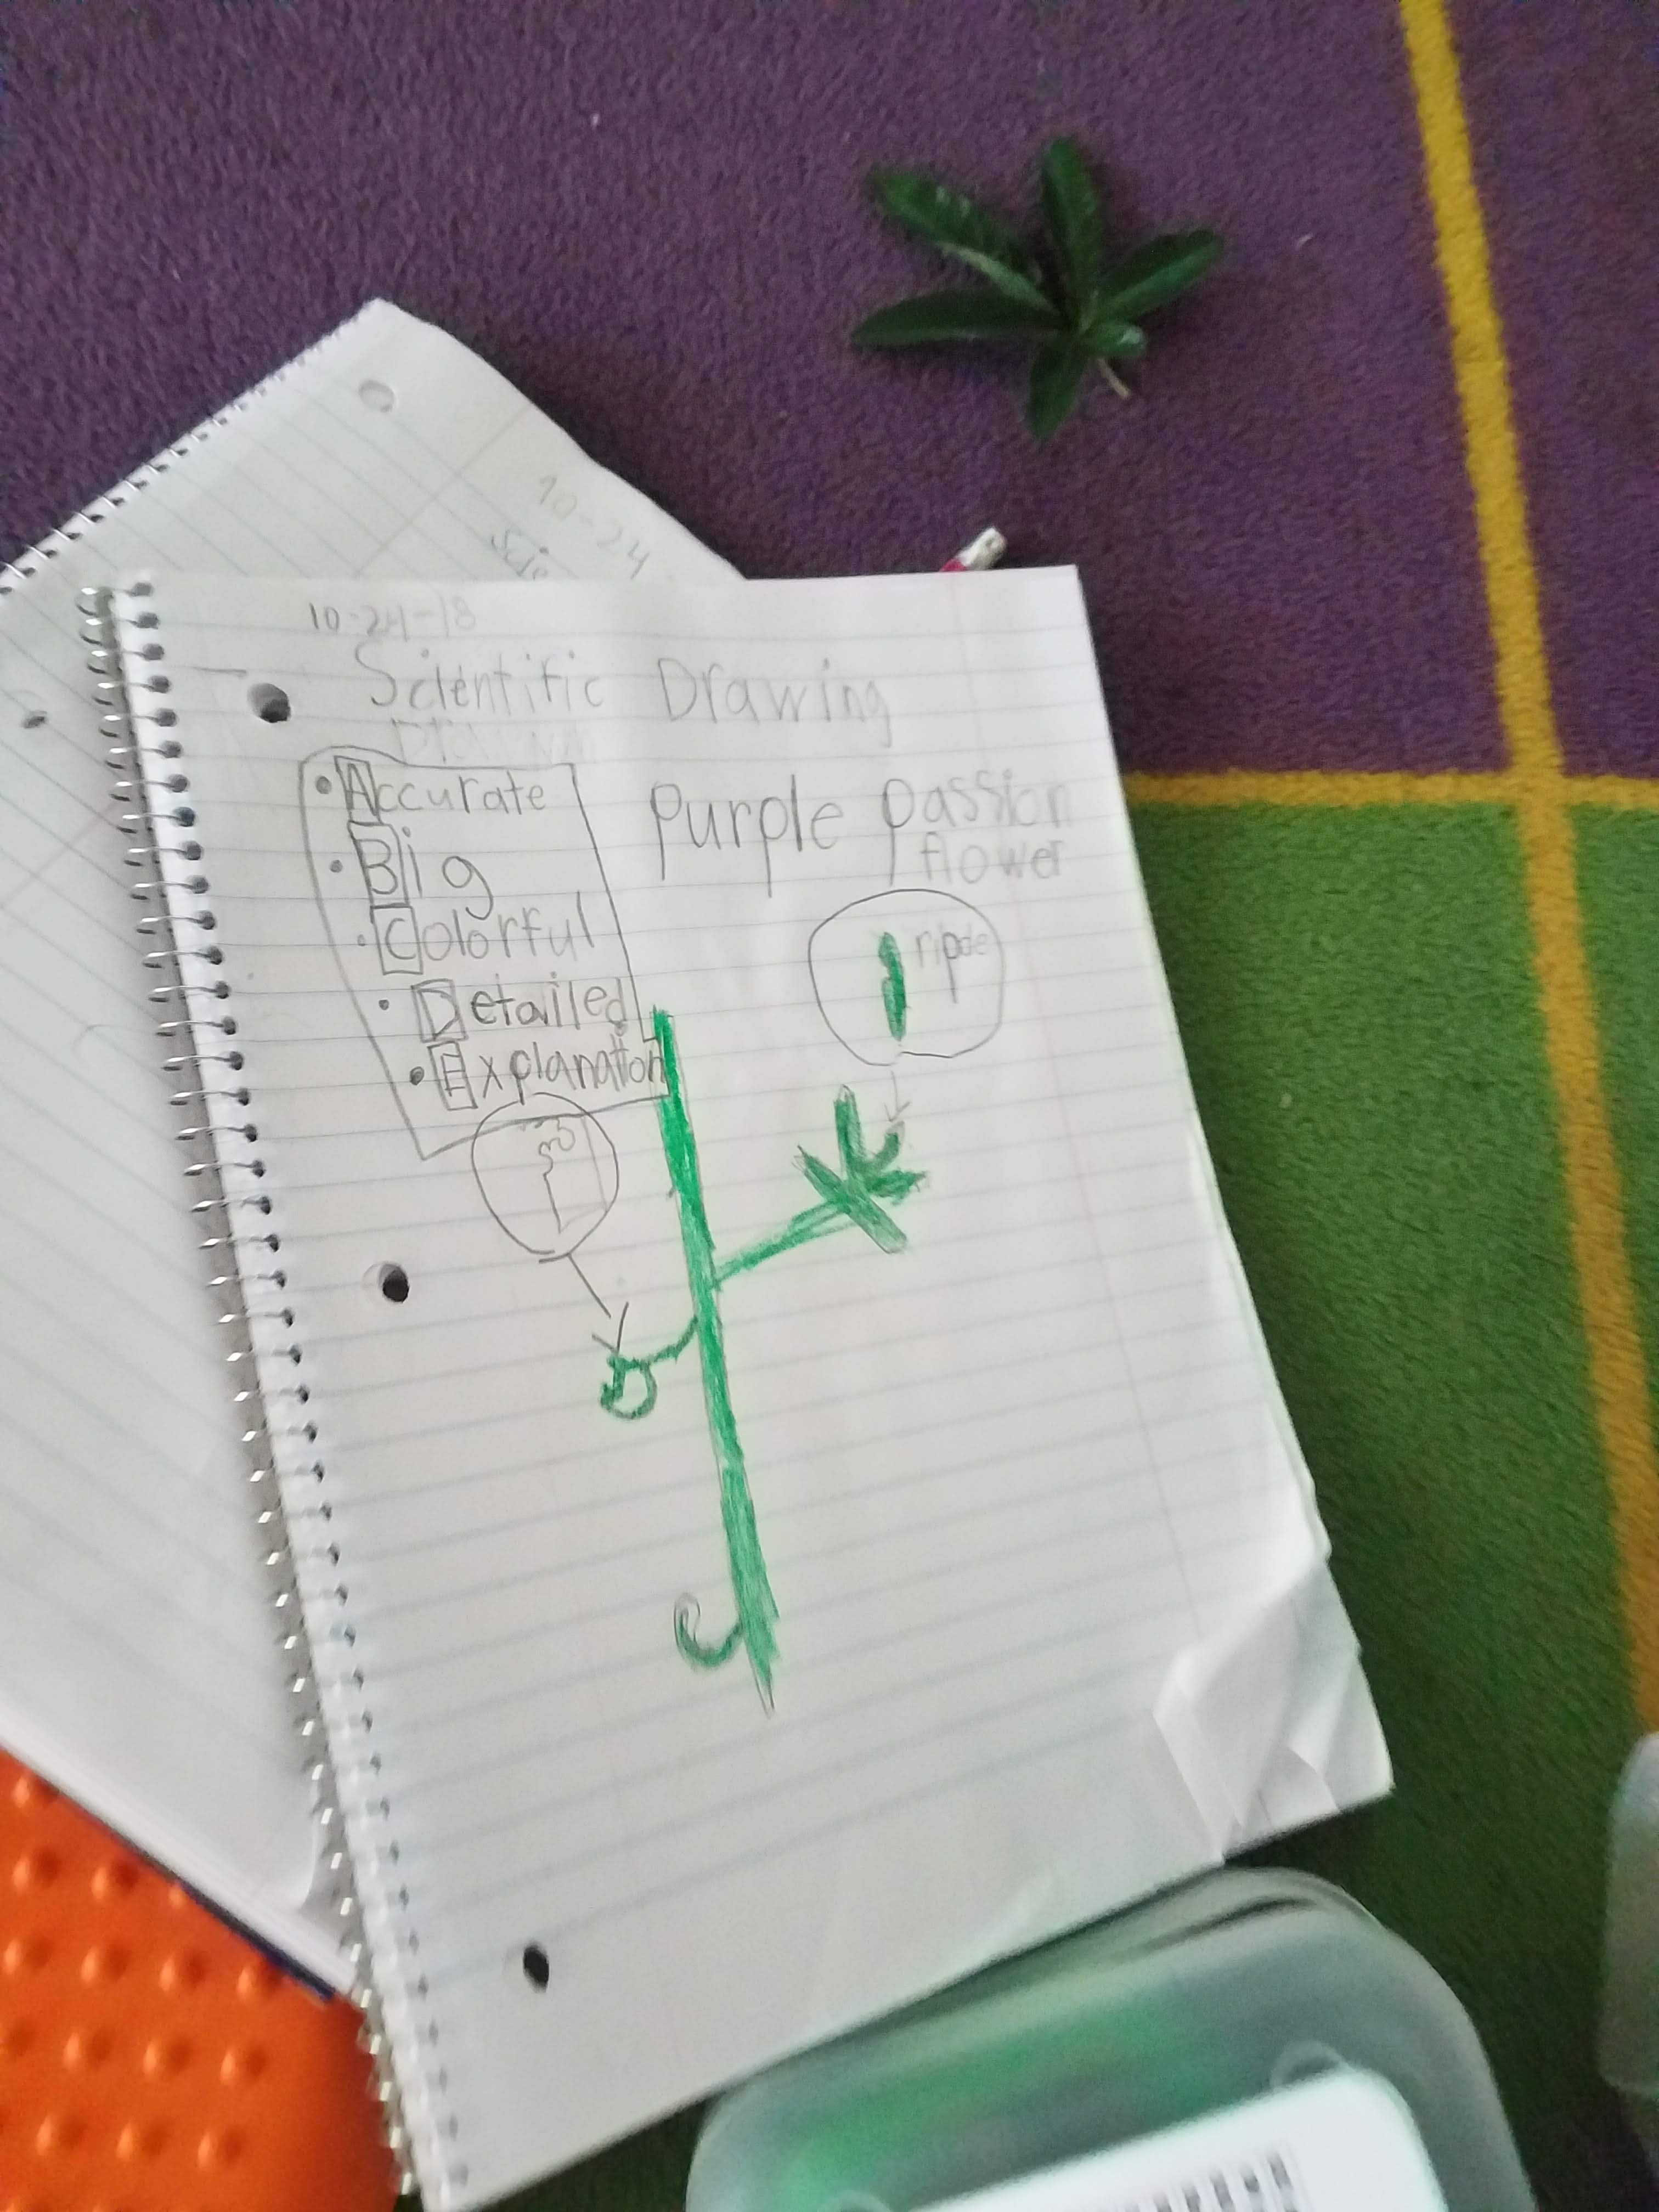 10-24
Scie
10-24-18
Scientific Drawing
• Accurate
• Big
• Colorful
• Detailed
• Explanation
Purple passion
flower